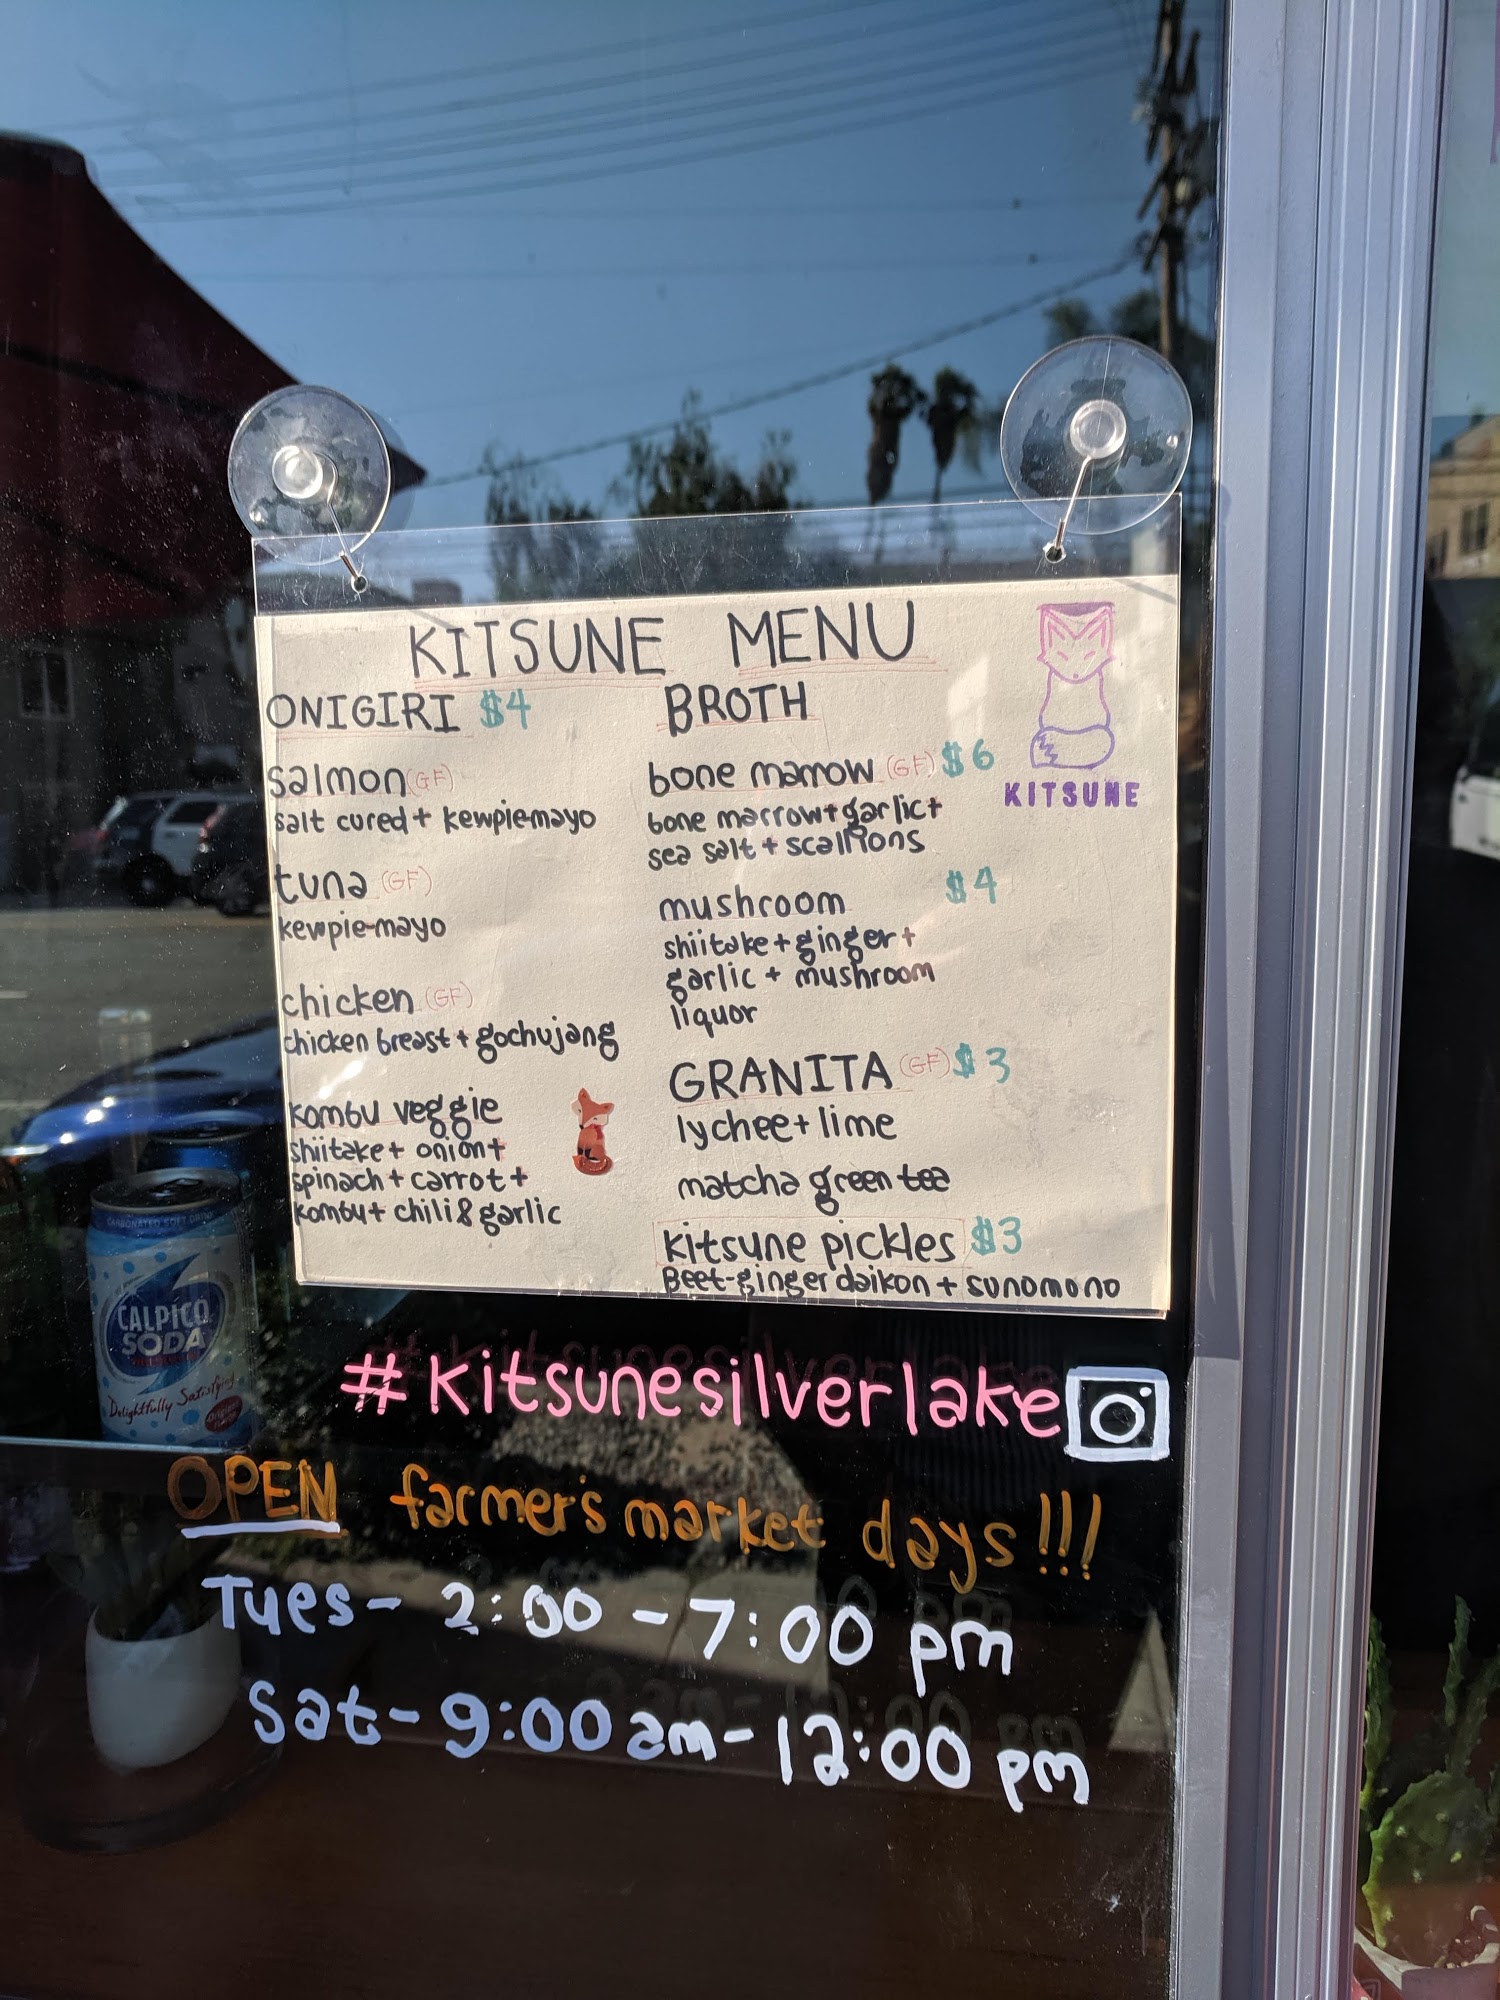 KITSUNE MENU
ONIGIRI $4
salmon (GF)
salt cured + kewpie mayo
tuna (GF)
kewpie mayo
chicken (GF)
chicken breast + gochujang
kombu veggie
shiitake + onion +
spinach + carrot +
kombu + chili & garlic
BROTH
bone marrow (GF) $6
bone marrow + garlic +
sea salt + scallions
mushroom $4
shiitake + ginger +
garlic + mushroom
liquor
GRANITA (GF) $3
lychee + lime
matcha green tea
kitsune pickles $3
Beet-ginger daikon + sunomono
KITSUNE
CARBONATED SOFT DRINK
CALPICO
SODA
Delightfully Satisfying
#kitsunesilverlake
OPEN farmer's market days!!!
Tues - 2:00 - 7:00 pm
Sat - 9:00 am - 12:00 pm